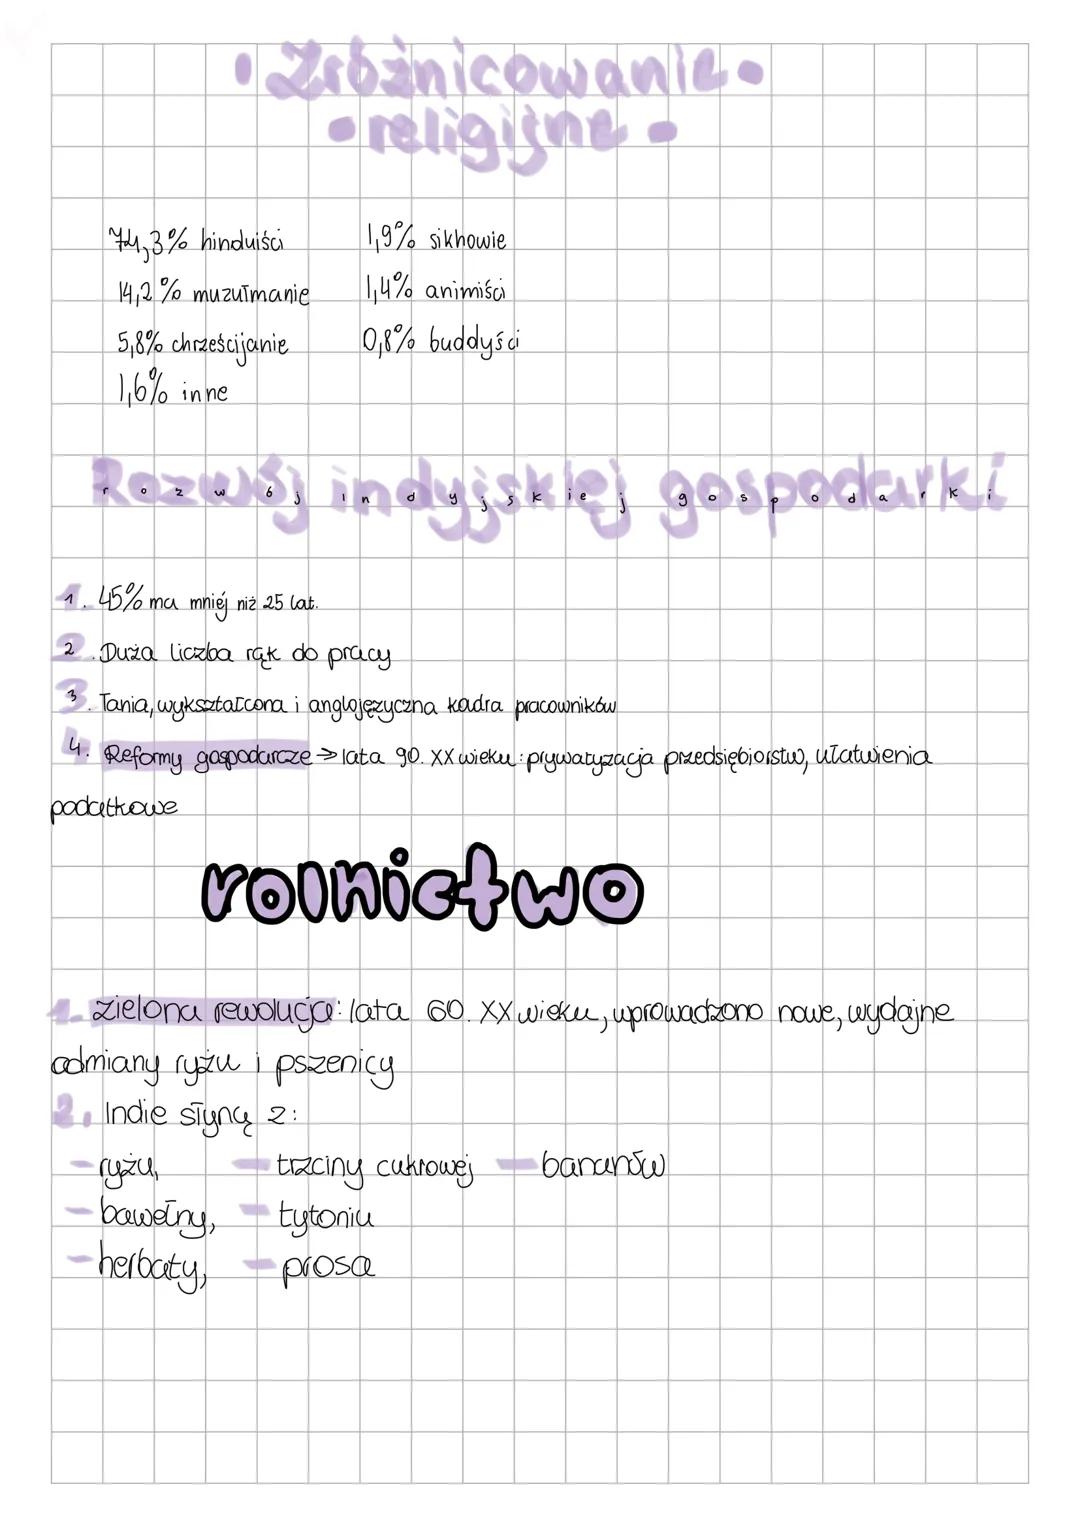 • Zróżnicowanie •
• religijne •
74,3% hinduiści
1,9% sikhowie
14,2% muzułmanie
1,4% animiści
5,8% chrześcijanie
0,8% buddyści
1,6% inne
Rozwój indyjskiej gospodarki
rozwój indyjskiej gospodarki
1. 45% ma mniej niż 25 lat.
2. Duża liczba rąk do pracy
3. Tania, wykształcona i anglojęzyczna kadra pracowników
4. Reformy gospodarcze → lata 90. XX wieku: prywatyzacja przedsiębiorstw, ułatwienia
podatkowe
rolnictwo
1. zielona rewolucja: lata 60. XX wieku, wprowadzono nowe, wydajne
odmiany ryżu i pszenicy
2. Indie słyną z:
- ryżu, - trzciny cukrowej - bananów
- bawełny, - tytoniu
- herbaty, - prosa